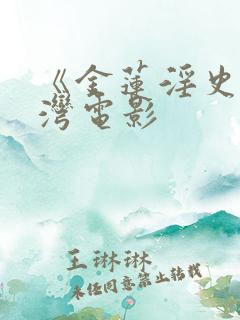 《金莲淫史
湾电影
王琳琳
未经同意禁止转载